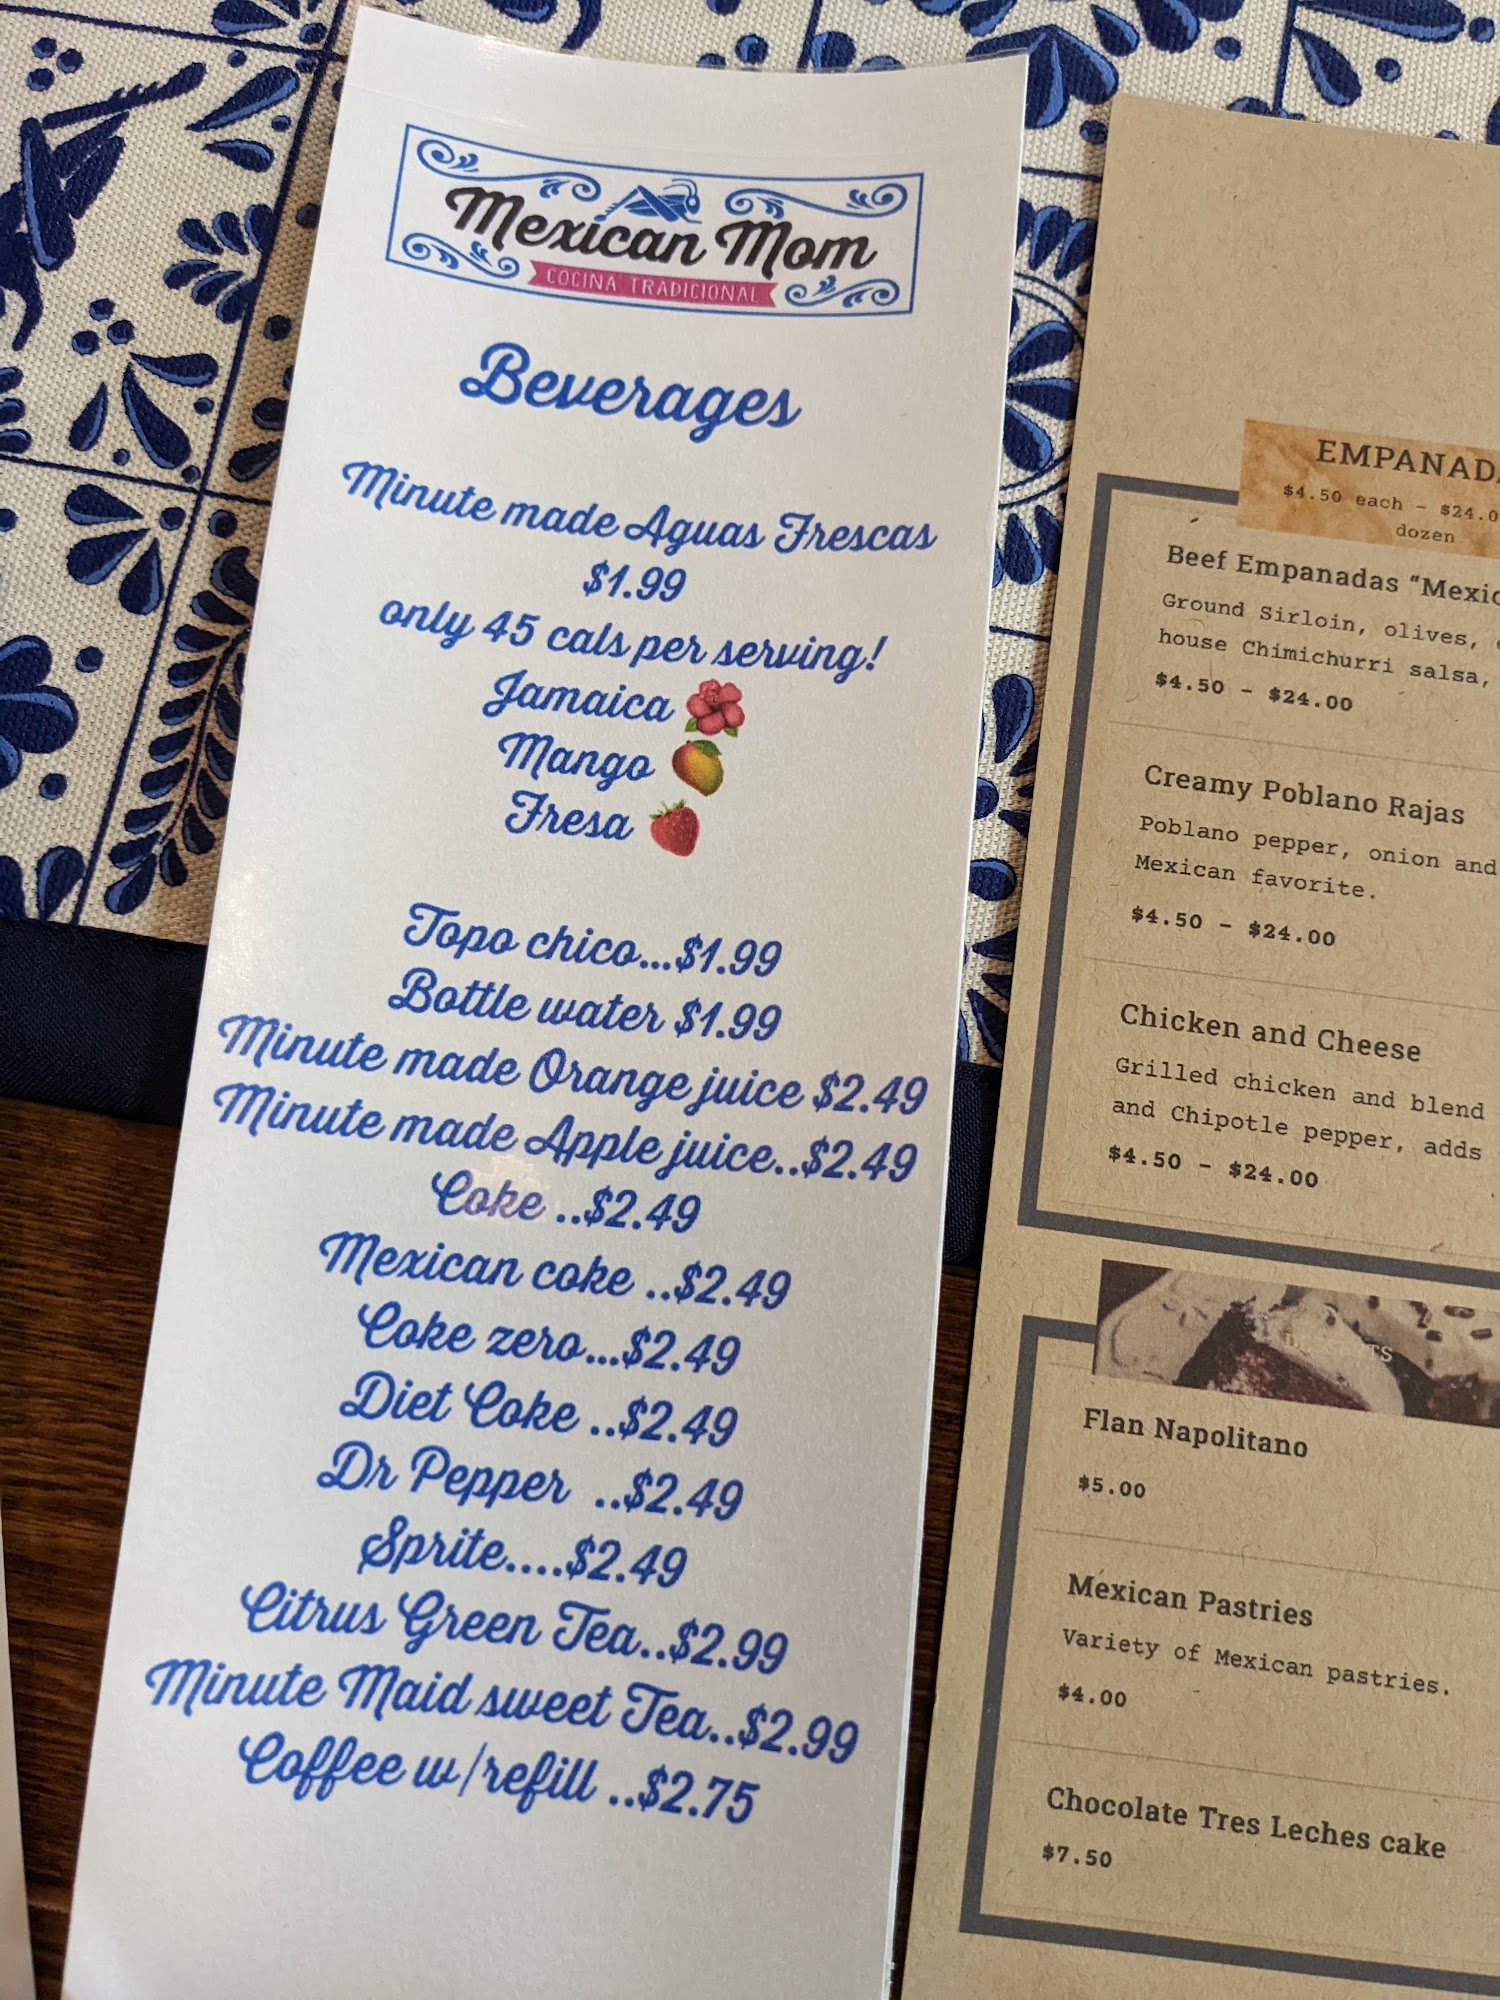 Mexican Mom
COCINA TRADICIONAL
Beverages
Minute made Aguas Frescas
$1.99
only 45 cals per serving!
Jamaica
Mango
Fresa
Topo chico...$1.99
Bottle water $1.99
Minute made Orange juice $2.49
Minute made Apple juice..$2.49
Coke ..$2.49
Mexican coke ..$2.49
Coke zero...$2.49
Diet Coke ..$2.49
Dr Pepper ..$2.49
Sprite....$2.49
Citrus Green Tea..$2.99
Minute Maid sweet Tea..$2.99
Coffee w/refill ..$2.75
EMPANAD
$4.50 each - $24.0
dozen
Beef Empanadas "Mexic
Ground Sirloin, olives,
house Chimichurri salsa,
$4.50 - $24.00
Creamy Poblano Rajas
Poblano pepper, onion and
Mexican favorite.
$4.50 - $24.00
Chicken and Cheese
Grilled chicken and blend
and Chipotle pepper, adds
$4.50 - $24.00
Flan Napolitano
$5.00
Mexican Pastries
Variety of Mexican pastries.
$4.00
Chocolate Tres Leches cake
$7.50